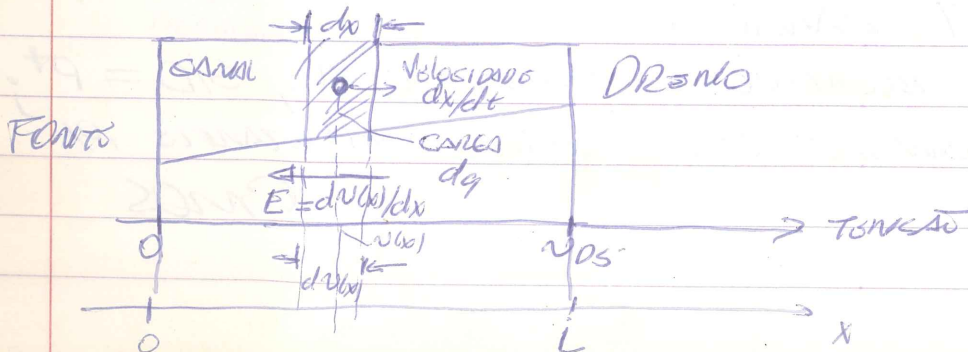 dx
CANAL
VELOCIDADE
dx/dt
DRENO
FONTE
CARGA
dq
E = dv(x)/dx
v(x)
0
vDS
TENSÃO
dv(x)
0
L
x